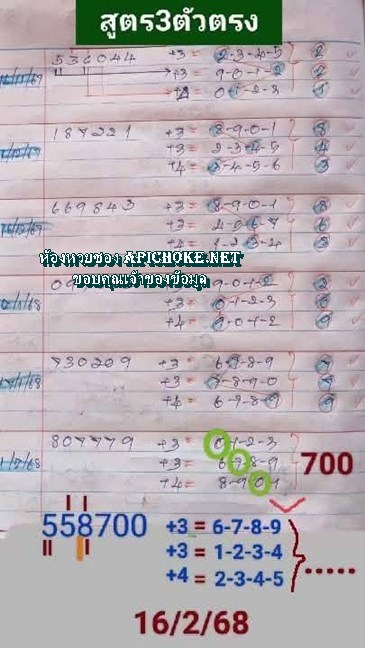 สูตร3ตัวตรง
536044 +3= 2-3-4-5 2
+3= 9-0-1-2
+4 0-1-2-3
187221 +3= 8-9-0-1 8
+3= 2-3-4-5 4
+4= 3-4-5-6 3
669843 +3= 8-9-0-1 8
+3= 4-5-6-7
+4= 1-2-3-4 3
ห้องหวยซอง APICHOKE.NET
ขอบคุณเจ้าของข้อมูล
9-0-1-2
+3= 0-1-2-3
+4 9-0-1-2 9
730209 +3= 6-7-8-9
+3= 7-8-9-0
+4= 6-7-8-9
807779 +3= 0-1-2-3
+3= 6-7-8-9 700
+4= 8-9-0-1
558700 +3 = 6-7-8-9
+3 = 1-2-3-4
+4 = 2-3-4-5 .....
16/2/68